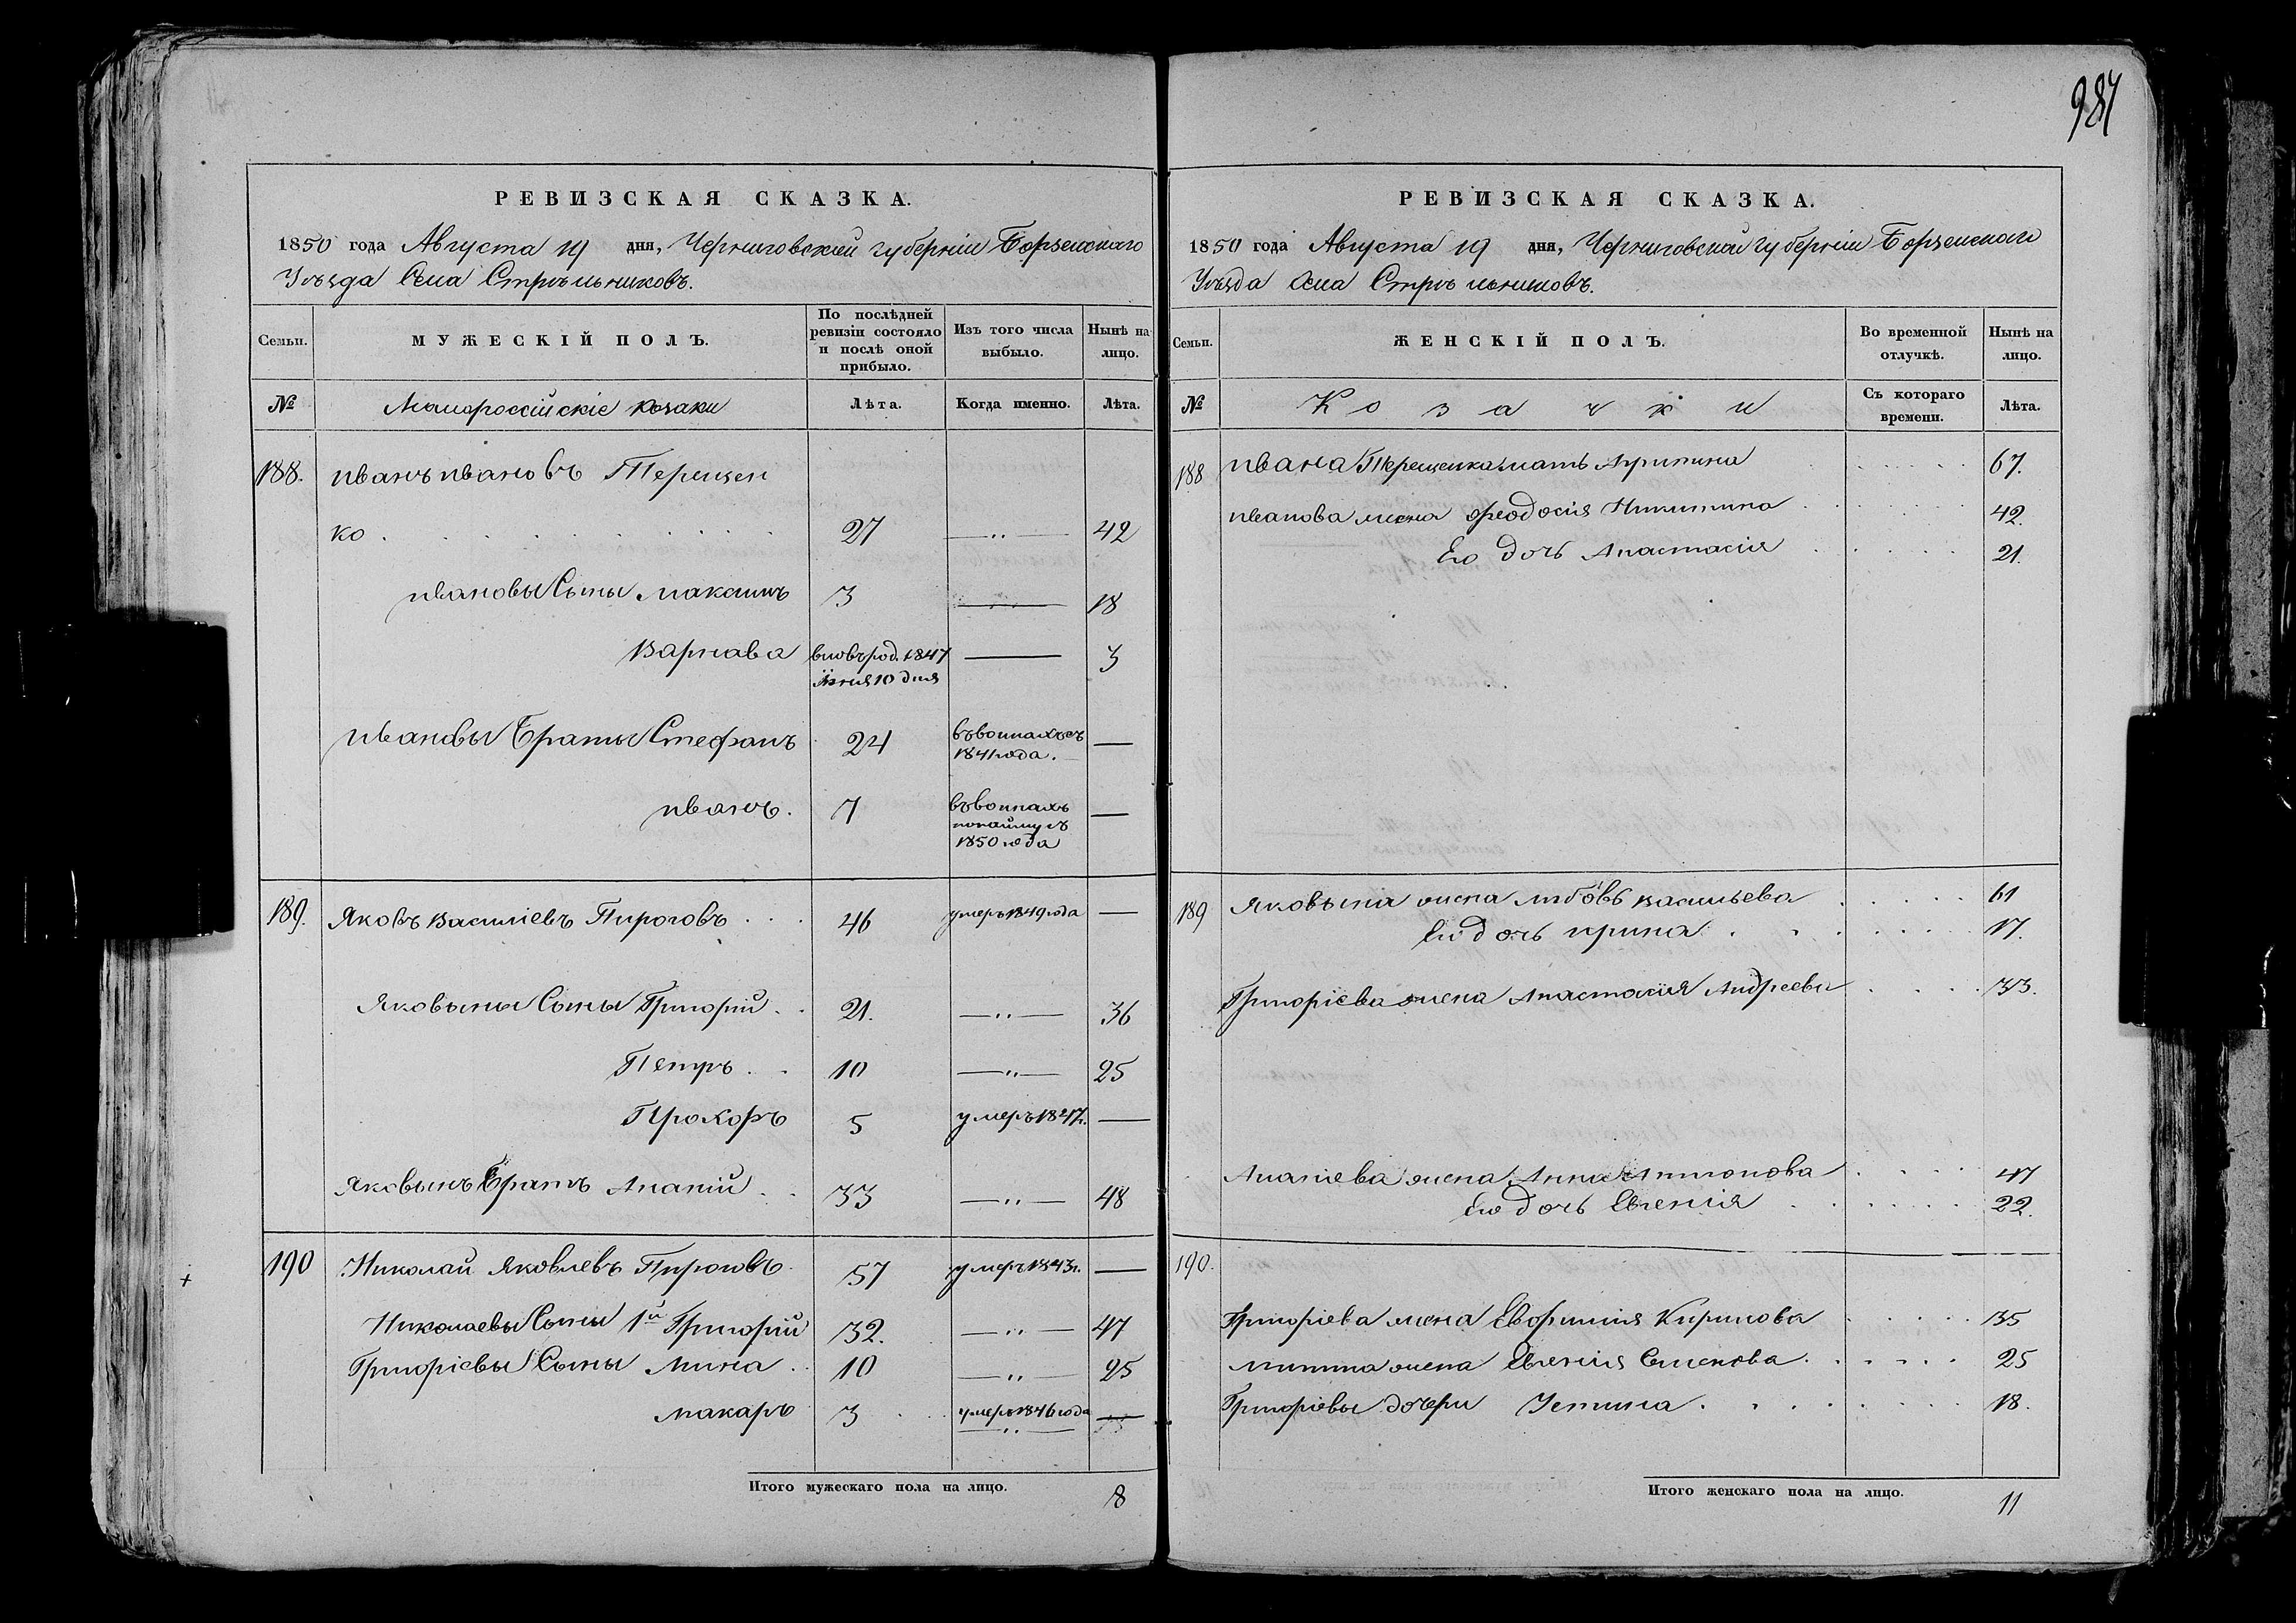 987
РЕВИЗСКАЯ СКАЗКА.
1850 года Августа 19 дня, Черниговской губерніи Борзенскаго
Уѣзда Села Стрѣльниковъ.
Семьи.
МУЖЕСКІЙ ПОЛЪ.
По послѣдней ревизіи состояло и послѣ оной прибыло.
Изъ того числа выбыло.
Нынѣ на лицо.
№ Малороссійскіе козаки Лѣта. Когда именно. Лѣта.
188. Иванъ Ивановъ Терещен
ко 27 —„— 42
Ивановы Сыны Максимъ 3 — 18
Варнава вновь род. 1847 — 3
Іюня 10 дня
Ивановы Браты Стефанъ 24 въ воинахъ съ —
1841 года.
Иванъ. 7 въ воинахъ —
по найму съ
1850 года
189. Яковъ Василіевъ Пироговъ 46 умеръ 1849 года —
Яковыны Сыны Григорій 21. —„— 36
Петръ 10 —„— 25
Прохоръ 5 умеръ 1847г. —
Яковынъ Братъ Ананій 33 —„— 48
190 Николай Яковлевъ Пироговъ 57 умеръ 1843г. —
Николаевы Сыны 1й Григорій 32. —„— 47
Григоріевы Сыны Мина 10 —„— 25
Макаръ 3 умеръ 1846 года —
Итого мужескаго пола на лицо. 8
РЕВИЗСКАЯ СКАЗКА.
1850 года Августа 19 дня, Черниговской губерніи Борзенскаго
Уѣзда Села Стрѣльниковъ.
Семьи.
ЖЕНСКІЙ ПОЛЪ.
Во временной отлучкѣ.
Нынѣ на лицо.
№ Козачки Съ котораго времени. Лѣта.
188 Ивана Терещенка мать 67.
Иванова жена Феодосія Никитина 42.
Его дочь Анастасія 21.
189 Яковына жена Любовь Васильева 61
Его дочь Ирина 17.
Григоріева жена Анастасія Андреева 33.
Ананіева жена Анна Антонова 47
Его дочь Евгенія 22.
190.
Григоріева жена Евфимія Кирилова 35
Минина жена Евгенія 25
Григоріевы дочери Устина 18.
Итого женскаго пола на лицо. 11